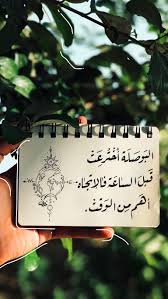 البَوصَلَة اُخْتُرِعَتْ
قَبلَ الساعَة فالاتِجاه
اهَم مِن الوَقتْ.